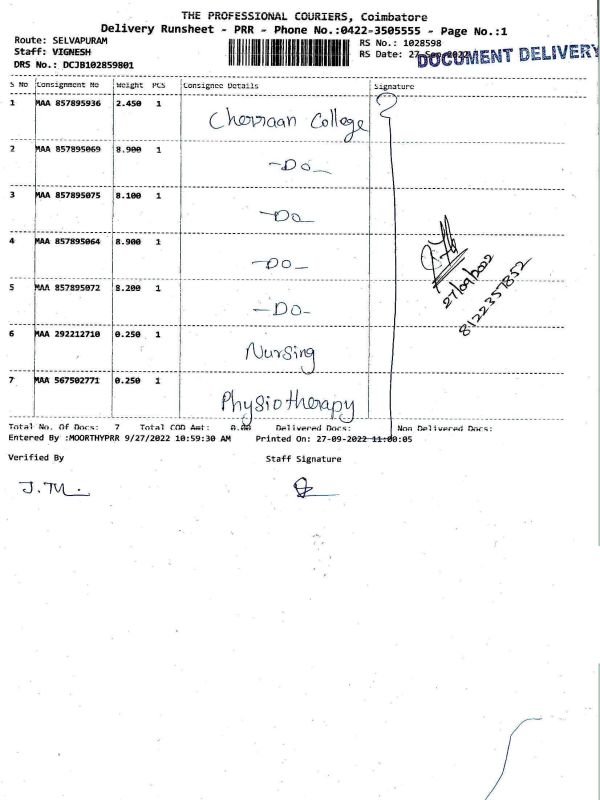 THE PROFESSIONAL COURIERS, Coimbatore
Delivery Runsheet - PRR - Phone No.:0422-3505555 - Page No.:1
Route: SELVAPURAM
Staff: VIGNESH
DRS No.: DCJB102859801
RS No.: 1028598
RS Date: 27-Sep-2022
DOCUMENT DELIVERY
S No Consignment No Weight PCS Consignee Details Signature
1 MAA 857895936 2.450 1 Cherraan College
2 MAA 857895069 8.900 1 -Do-
3 MAA 857895075 8.100 1 -Do-
4 MAA 857895064 8.900 1 -Do-
5 MAA 857895072 8.200 1 -Do-
6 MAA 292212710 0.250 1 Nursing
7 MAA 567502771 0.250 1 Physiotherapy
27/09/2022
8122357852
Total No. Of Docs: 7 Total COD Amt: 0.00 Delivered Docs: Non Delivered Docs:
Entered By :MOORTHYPRR 9/27/2022 10:59:30 AM Printed On: 27-09-2022 11:00:05
Verified By Staff Signature